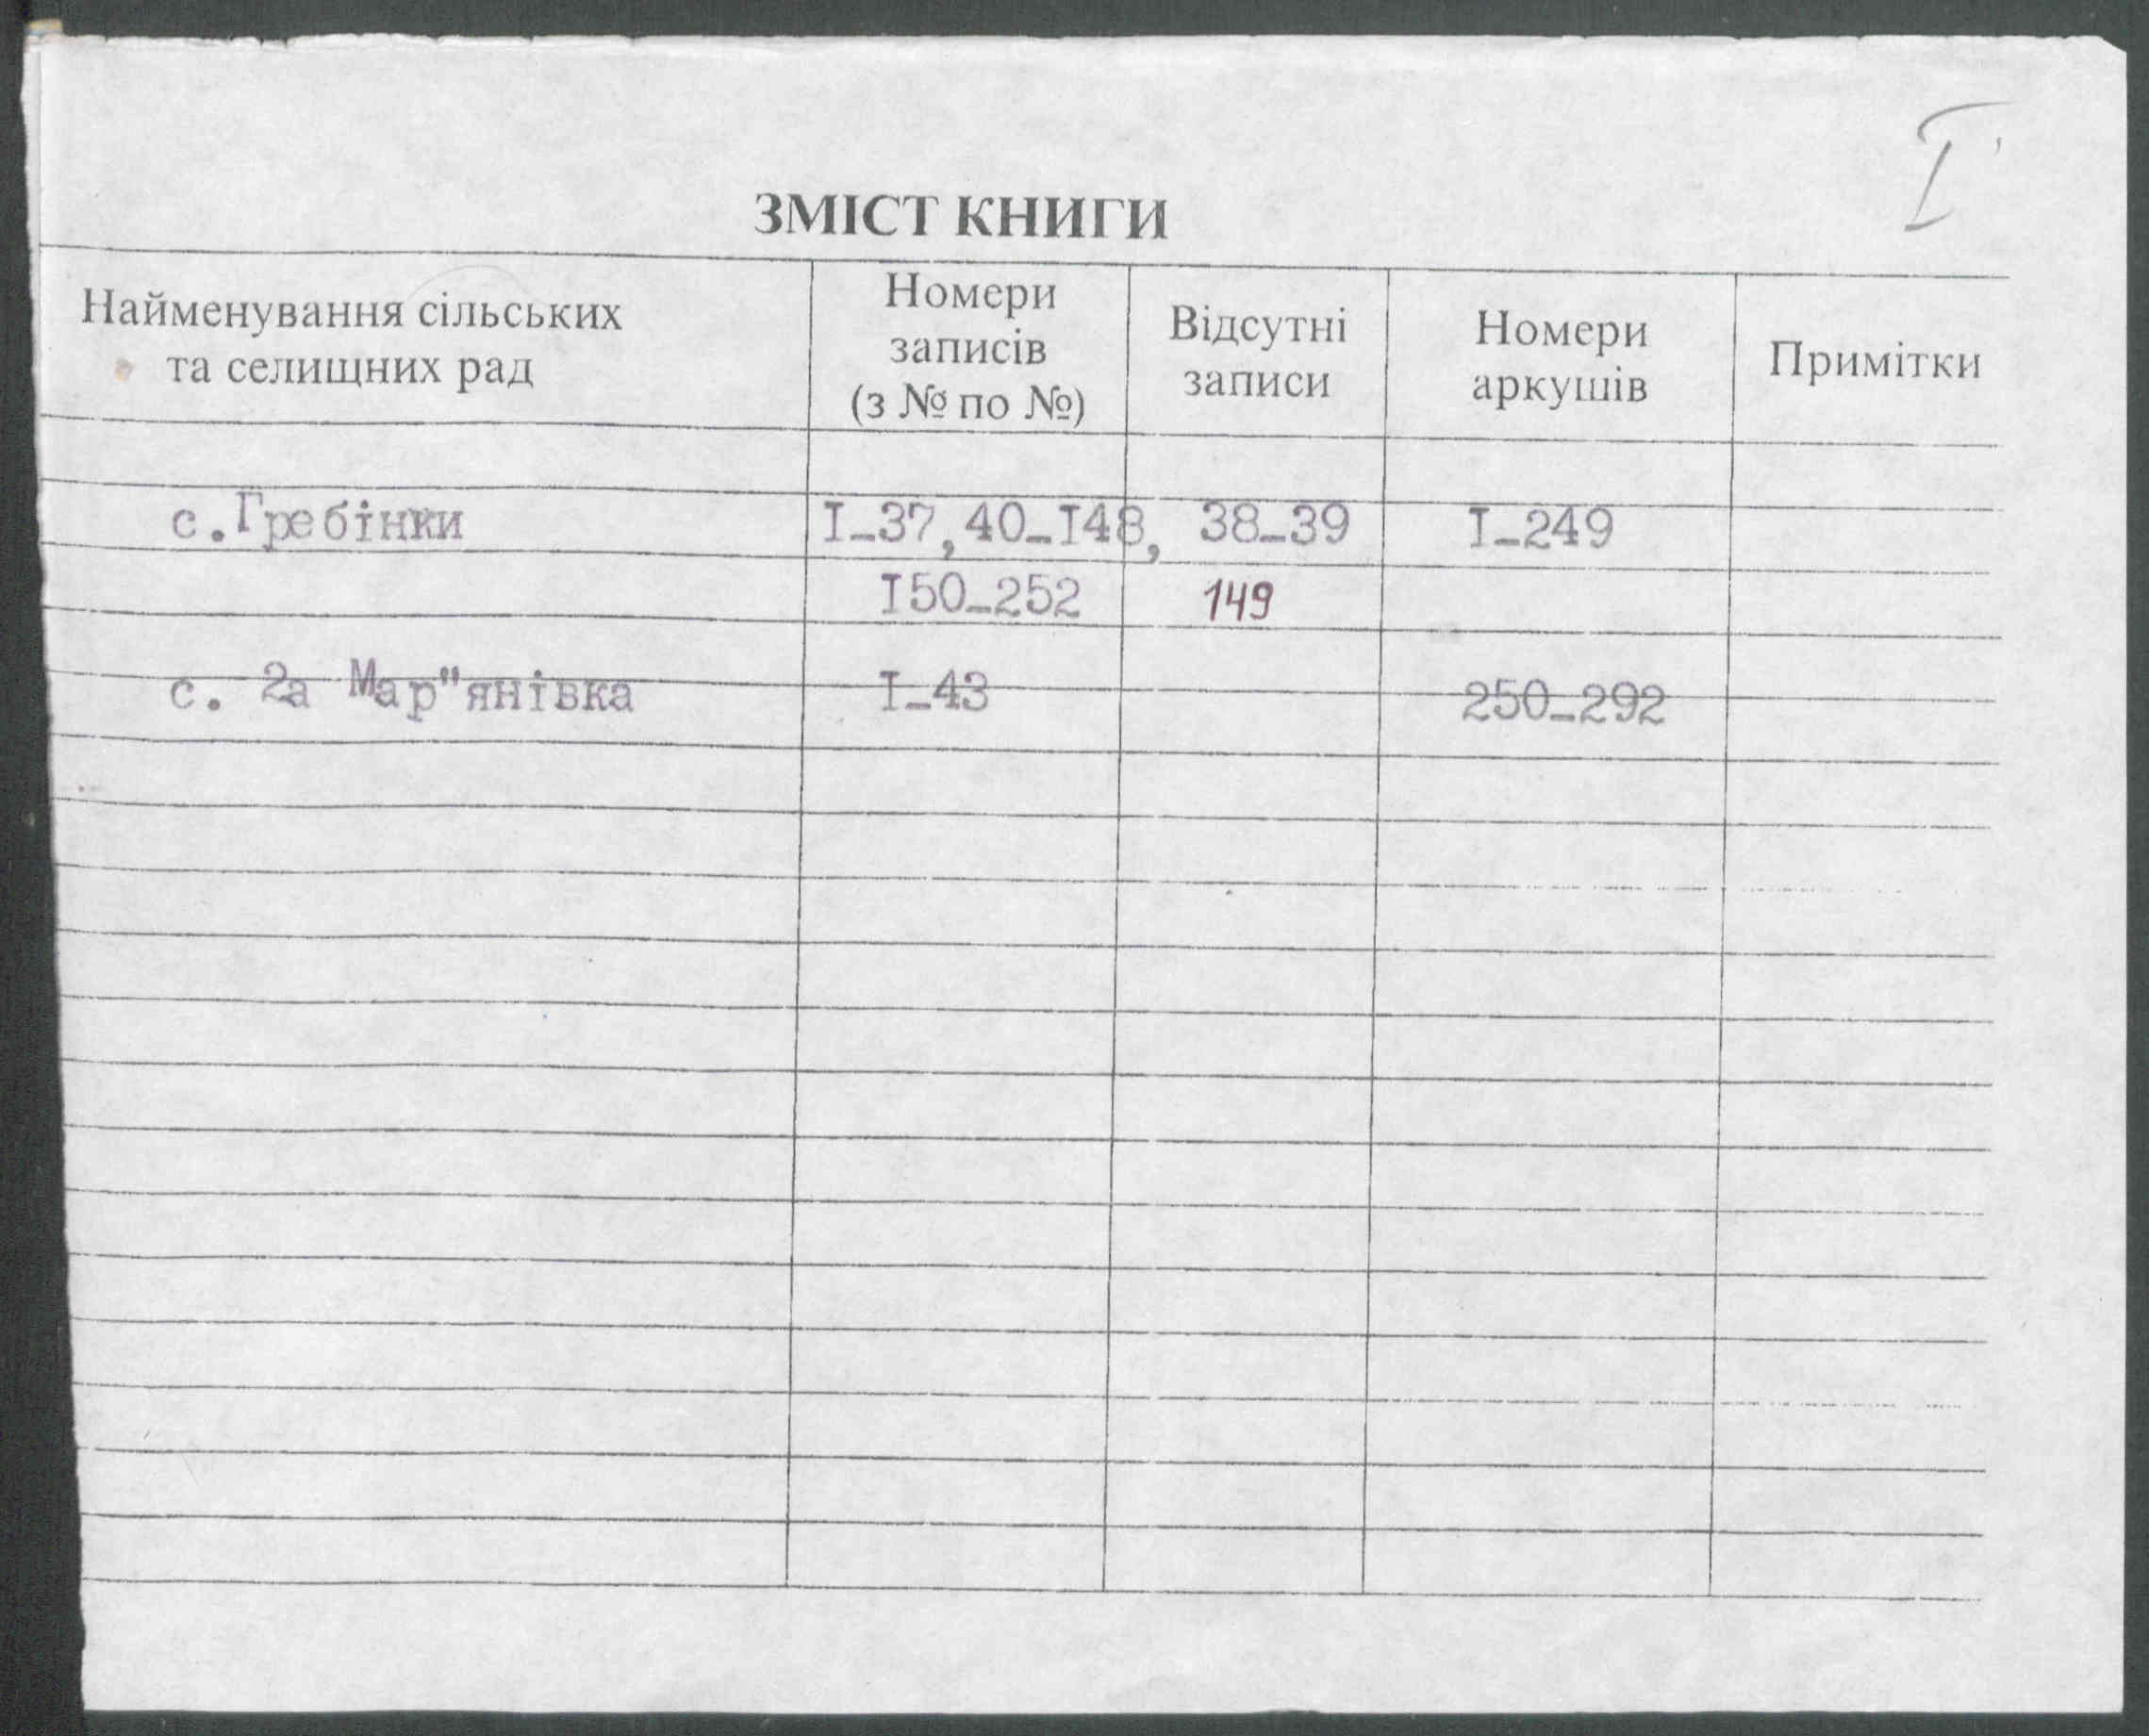 I
ЗМІСТ КНИГИ
Найменування сільських та селищних рад
Номери записів (з № по №)
Відсутні записи
Номери аркушів
Примітки
с.Гребінки I-37,40-I48, 38-39 I-249
I50-252 149
с. 2а Мар"янівка I-43 250-292